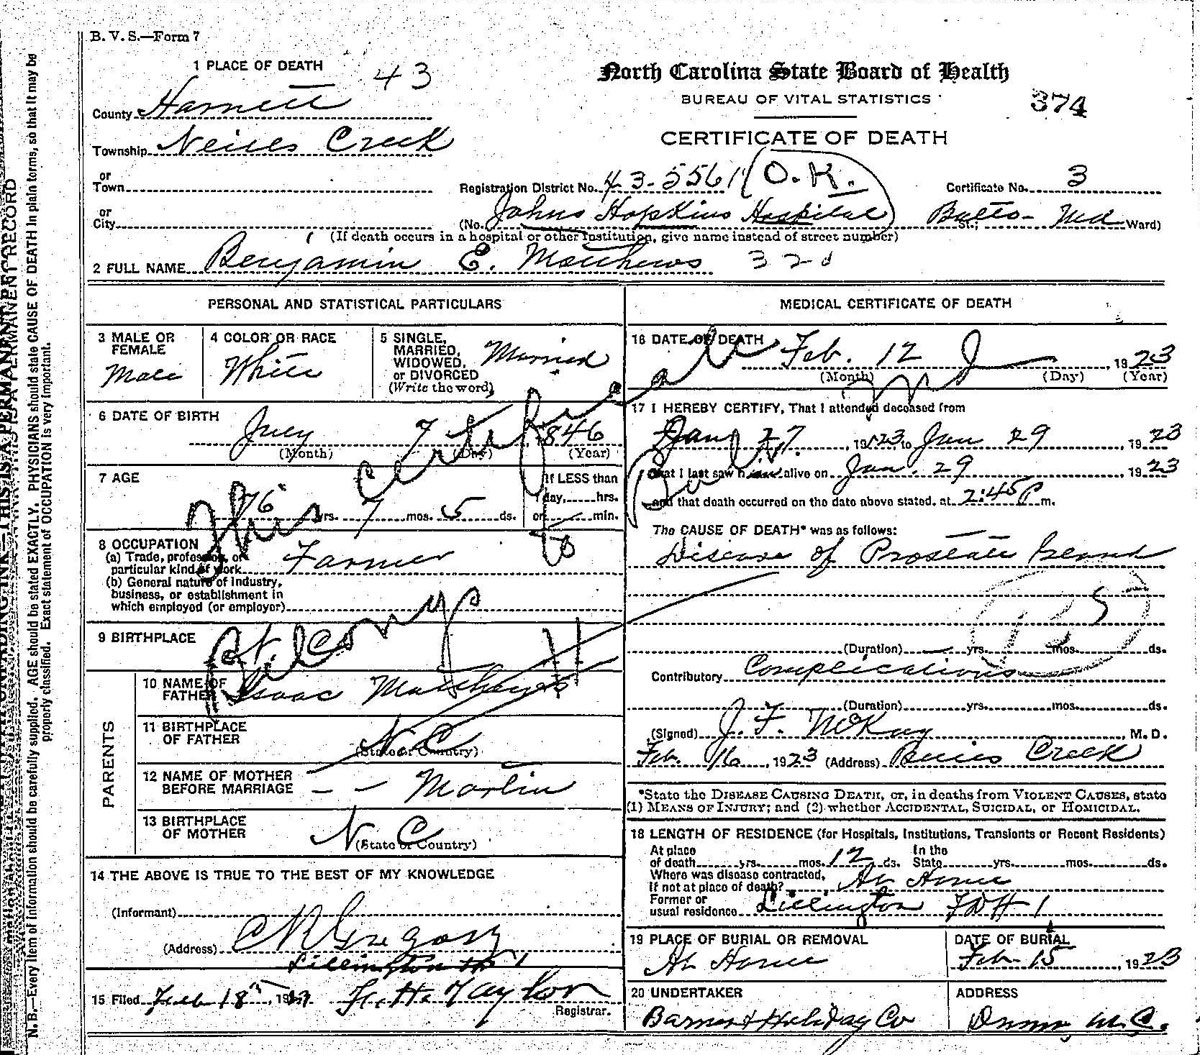 B. V. S.—Form 7
1 PLACE OF DEATH 43
North Carolina State Board of Health
BUREAU OF VITAL STATISTICS
374
CERTIFICATE OF DEATH
County Harnett
Township Neills Creek
or Town
Registration District No. 43-5561 O.K.
Certificate No. 3
or City
(No. Johns Hopkins Hospital Balto- Md St.; Ward)
(If death occurs in a hospital or other institution, give name instead of street number)
2 FULL NAME Benjamin E. Matthews
PERSONAL AND STATISTICAL PARTICULARS
3 MALE OR FEMALE Male
4 COLOR OR RACE White
5 SINGLE, MARRIED, WIDOWED, or DIVORCED (Write the word) Married
6 DATE OF BIRTH July 7 1846
(Month) (Day) (Year)
7 AGE 76 yrs. 7 mos. 5 ds.
If LESS than 1 day, hrs. or min.
8 OCCUPATION
(a) Trade, profession, or particular kind of work Farmer
(b) General nature of industry, business, or establishment in which employed (or employer)
9 BIRTHPLACE
PARENTS
10 NAME OF FATHER Isaac Matthews
11 BIRTHPLACE OF FATHER N. C
(State or Country)
12 NAME OF MOTHER BEFORE MARRIAGE — — Martin
13 BIRTHPLACE OF MOTHER N. C
(State or Country)
14 THE ABOVE IS TRUE TO THE BEST OF MY KNOWLEDGE
(Informant) C N Gregory
(Address) Lillington
15 Filed Feb 18 Taylor
Registrar.
This certificate
to
MEDICAL CERTIFICATE OF DEATH
16 DATE OF DEATH Feb. 12 1923
(Month) (Day) (Year)
17 I HEREBY CERTIFY, That I attended deceased from
Jan 27 1923, to Jan 29 1923
that I last saw h alive on Jan. 29 1923
and that death occurred on the date above stated, at 2:45 P m.
The CAUSE OF DEATH* was as follows:
Disease of Prostate Gland
(Duration) yrs. mos. ds.
Contributory Complications
(Duration) yrs. mos. ds.
(Signed) J. F. McKay M. D.
Feb. 16, 1923 (Address) Buies Creek
*State the DISEASE CAUSING DEATH, or, in deaths from VIOLENT CAUSES, state
(1) MEANS OF INJURY; and (2) whether ACCIDENTAL, SUICIDAL, OR HOMICIDAL.
18 LENGTH OF RESIDENCE (for Hospitals, Institutions, Transients or Recent Residents)
At place of death yrs. mos. 12 ds. In the State yrs. mos. ds.
Where was disease contracted, If not at place of death? At Home
Former or usual residence Lillington 1
19 PLACE OF BURIAL OR REMOVAL At Home
DATE OF BURIAL Feb 15 1923
20 UNDERTAKER Barnes & Holiday Co
ADDRESS Dunn N.C.
N. B.—Every item of information should be carefully supplied. AGE should be stated EXACTLY. PHYSICIANS should state CAUSE OF DEATH in plain terms, so that it may be
properly classified. Exact statement of OCCUPATION is very important.
THIS IS A PERMANENT RECORD